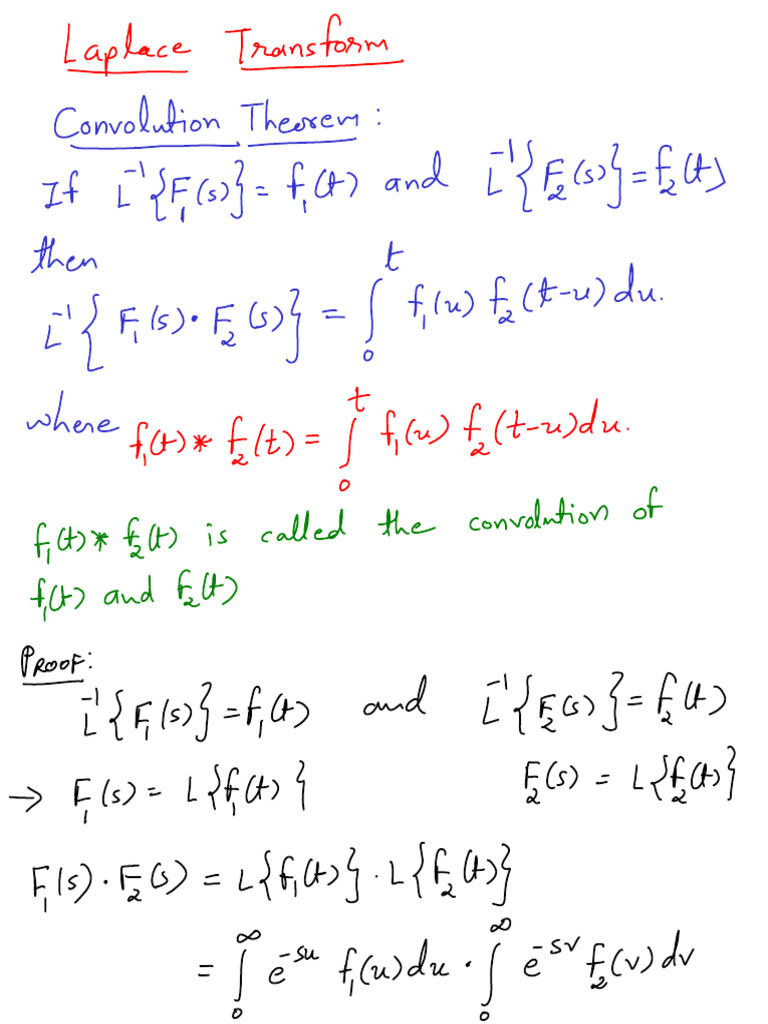 Laplace Transform
Convolution Theorem :
If L⁻¹{F₁(s)} = f₁(t) and L⁻¹{F₂(s)} = f₂(t)
then
L⁻¹{ F₁(s) · F₂(s)} = ∫₀ᵗ f₁(u) f₂(t-u) du.
where f₁(t) * f₂(t) = ∫₀ᵗ f₁(u) f₂(t-u)du.
f₁(t) * f₂(t) is called the convolution of
f₁(t) and f₂(t)
PROOF:
L⁻¹{F₁(s)} = f₁(t) and L⁻¹{F₂(s)} = f₂(t)
→ F₁(s) = L{f₁(t)} F₂(s) = L{f₂(t)}
F₁(s) · F₂(s) = L{f₁(t)} · L{f₂(t)}
= ∫₀^∞ e^{-su} f₁(u) du · ∫₀^∞ e^{-sv} f₂(v) dv